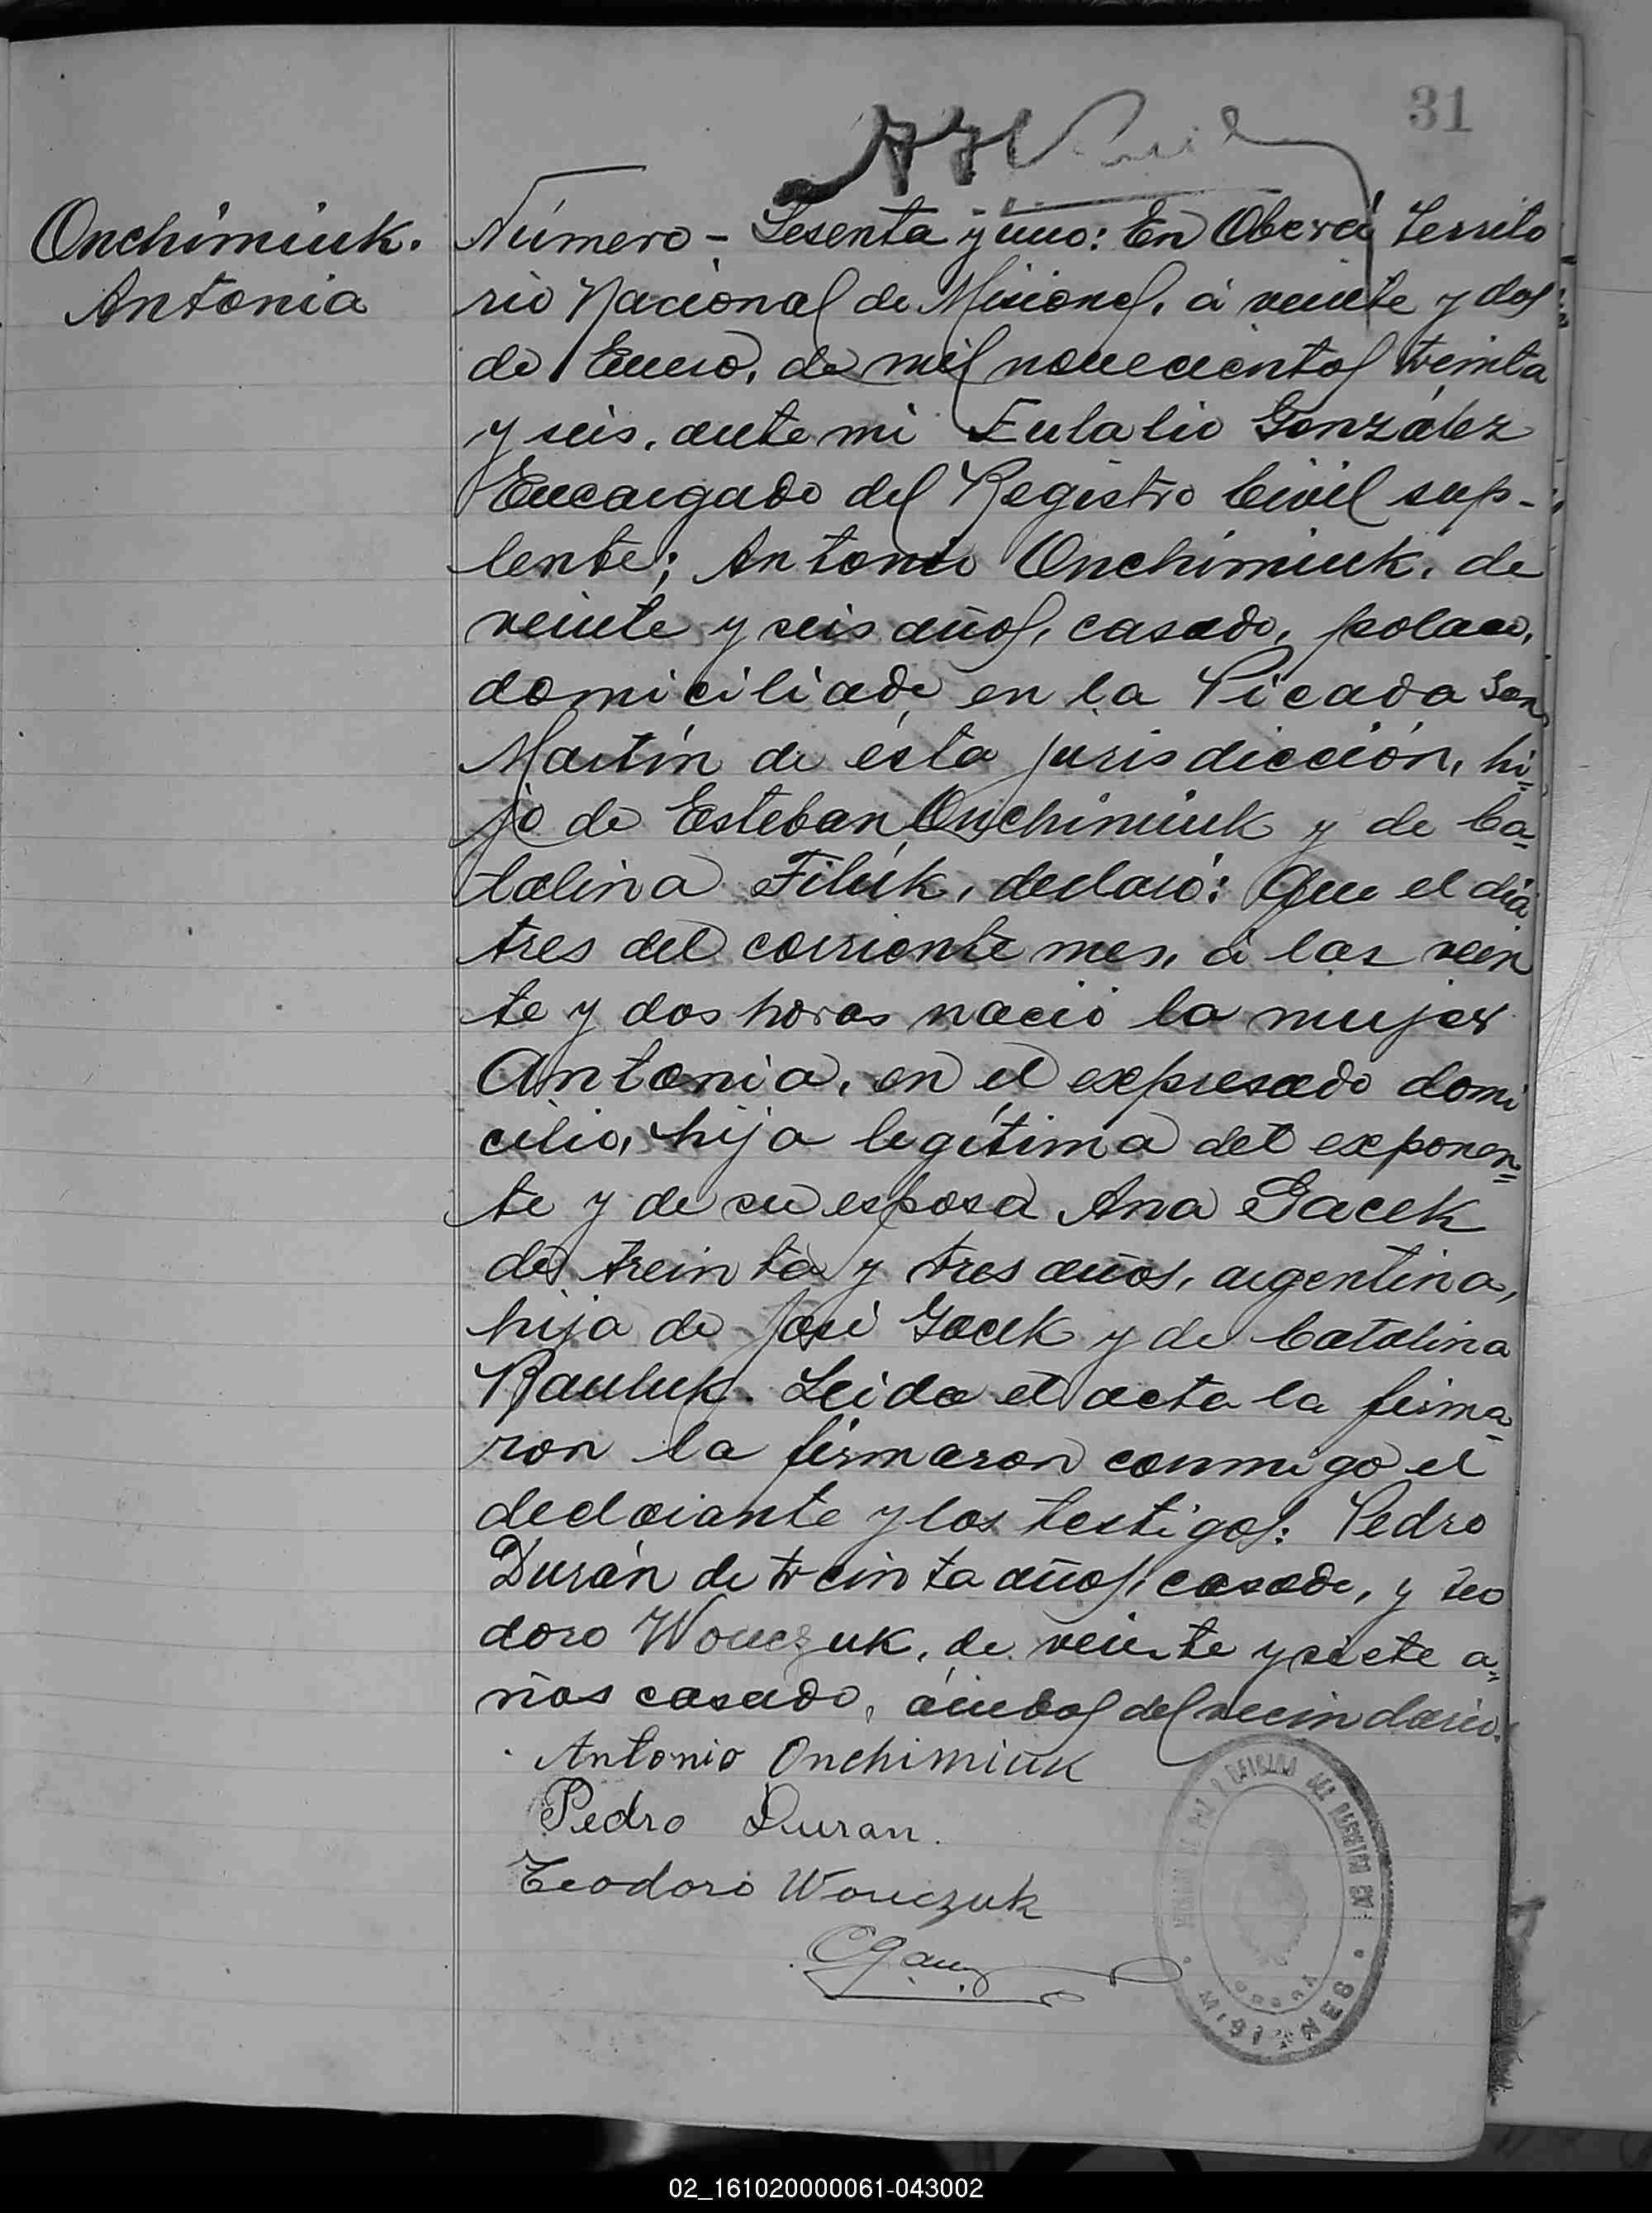 31
Onchimiuk.
Antonia
Número - Sesenta y uno: En Oberá Territo
rio Nacional de Misiones, á veinte y dos
de Enero, de mil novecientos treinta
y seis, ante mi Eulalio González
Encargado del Registro Civil sup-
lente; Antonio Onchimiuk, de
veinte y seis años, casado, polaco,
domiciliado en la Picada San
Martín de ésta jurisdicción, hi=
jo de Esteban Onchimiuk y de Ca=
talina Filuk, declaró: Que el día
tres del corriente mes, á las vein
te y dos horas nació la mujer
Antonia, en el expresado domi
cilio, hija legítima del exponen=
te y de su esposa Ana Gacek
de treinta y tres años, argentina,
hija de José Gacek y de Catalina
Rauluk. Leida el acta la firma=
ron la firmaron conmigo el
declarante y los testigos: Pedro
Durán de treinta años, casado, y Teo
doro Wouczuk, de veinte y siete a=
ños casado, ámbos del vecindario.
Antonio Onchimiuk
Pedro Duran.
Teodoro Wouczuk
MISIONES
02_161020000061-043002